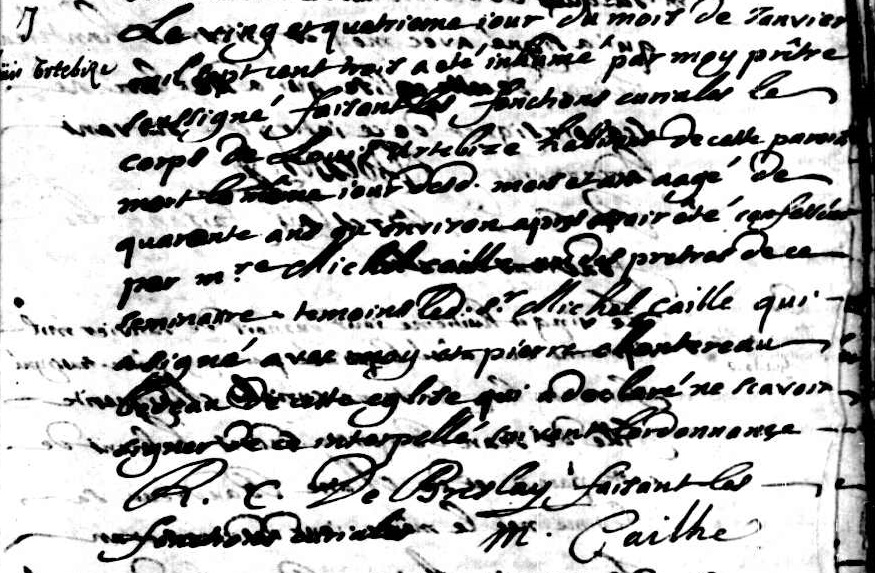 Le vingt et quatrieme jour du mois de Janvier
mil sept cent trois a eté inhumé par moy prêtre
soussigné faisant les fonctions curiales le
corps de Louis Ertebize habitant de cette paroisse
mort le même jour desd. mois et an aagé de
quarante ans ou environ apres avoir été confessé
par mre Michel caille un des pretres de ce
seminaire temoins led. Sr Michel Caille qui
a signé avec moy et pierre
bedeau de cette eglise qui a declaré ne scavoir
signer de ce interpellé suivant l'ordonnance
R. C. De Breslay faisant les
fonctions curiales M. Cailhe
Ertebize